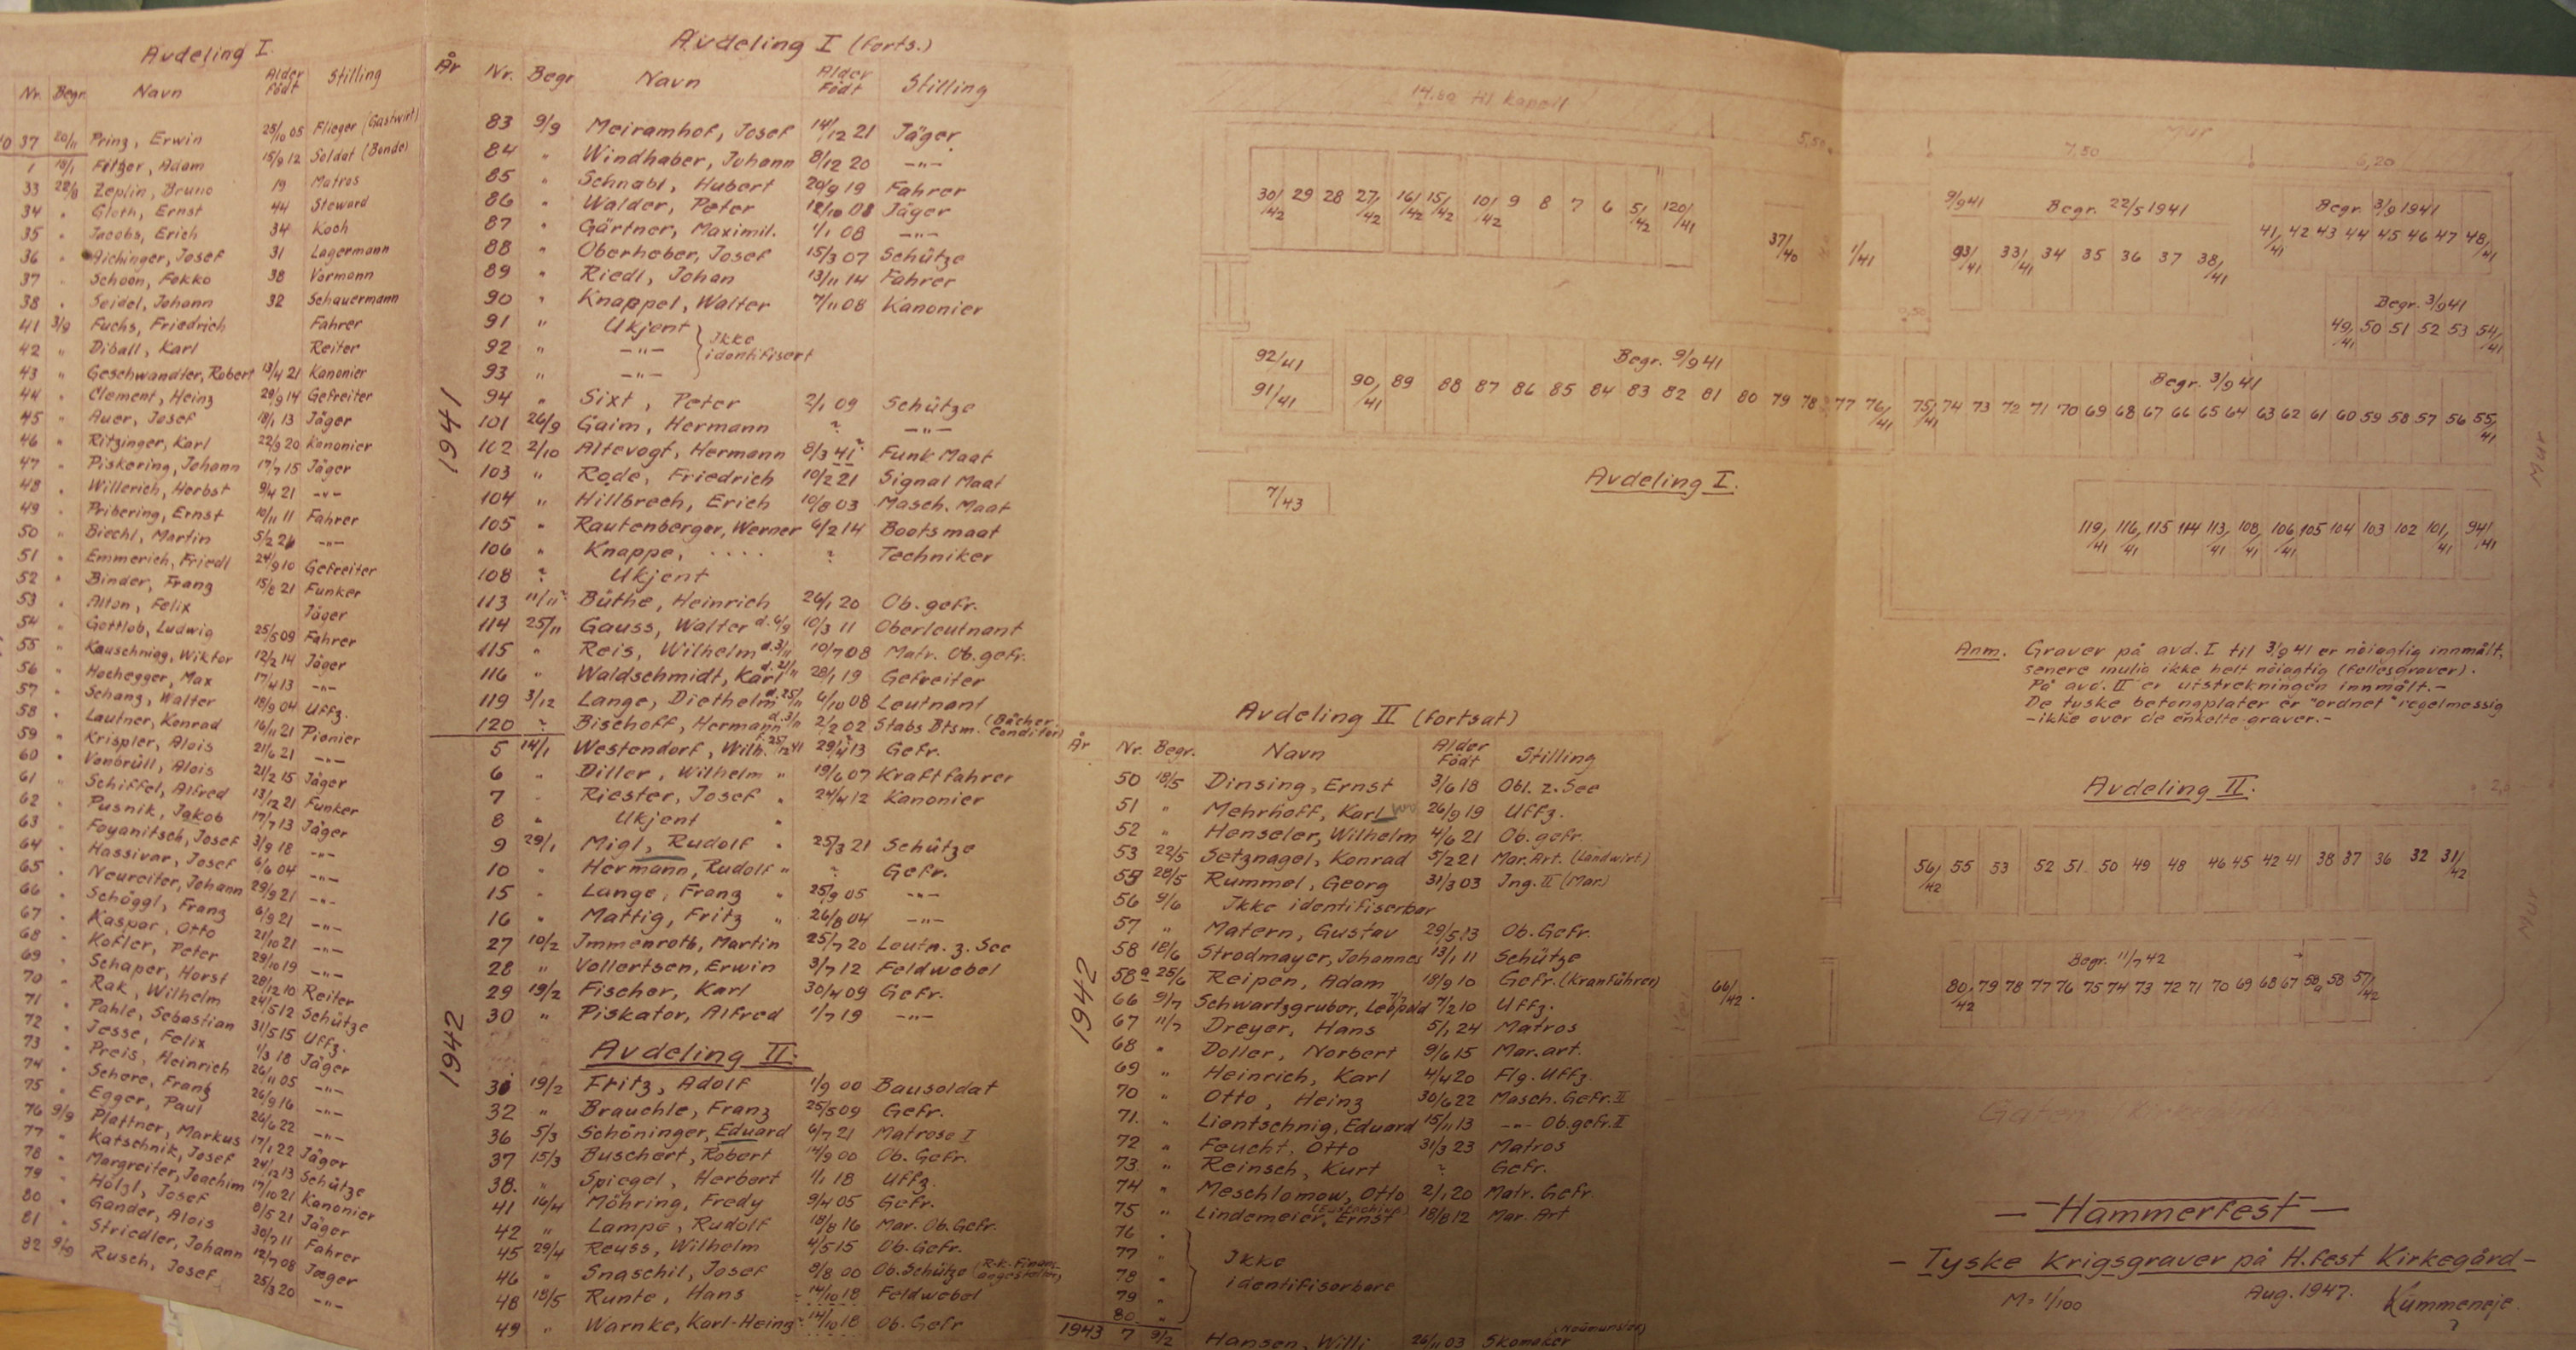 Avdeling I.
Nr. Begr. Navn Alder Født Stilling
37 20/11 Prinz, Erwin 25/10 05 Flieger (Gastwirt)
1 18/1 Fitzer, Adam 15/9 12 Soldat (Bonde)
33 22/8 Zeplin, Bruno 19 Matros
34 " Gloth, Ernst 44 Steward
35 " Jacobs, Erich 34 Koch
36 " Aichinger, Josef 31 Lagermann
37 " Schoon, Fokko 38 Vormann
38 " Seidel, Johann 32 Schauermann
41 3/9 Fuchs, Friedrich Fahrer
42 " Diball, Karl Reiter
43 " Geschwandter, Robert 13/4 21 Kanonier
44 " Clement, Heinz 29/9 14 Gefreiter
45 " Auer, Josef 18/1 13 Jäger
46 " Ritzinger, Karl 22/9 20 Kanonier
47 " Piskering, Johann 17/7 15 Jäger
48 " Willerich, Herbst 9/4 21 -"-
49 " Pribering, Ernst 10/11 11 Fahrer
50 " Biechl, Martin 5/2 21 -"-
51 " Emmerich, Friedl 24/9 10 Gefreiter
52 " Binder, Franz 15/8 21 Funker
53 " Alton, Felix Jäger
54 " Gottlob, Ludwig 25/5 09 Fahrer
55 " Kauschnigg, Wiktor 12/2 14 Jäger
56 " Hochegger, Max 17/4 13 -"-
57 " Schanz, Walter 18/9 04 Uffz.
58 " Lautner, Konrad 16/11 21 Pionier
59 " Krispler, Alois 21/6 21 -"-
60 " Vonbrüll, Alois 21/2 15 Jäger
61 " Schiffel, Alfred 13/12 21 Funker
62 " Pusnik, Jakob 17/7 13 Jäger
63 " Foyanitsch, Josef 3/9 18 -"-
64 " Hassivar, Josef 6/6 04 -"-
65 " Neureiter, Johann 29/9 21 -"-
66 " Schöggl, Franz 6/9 21 -"-
67 " Kaspar, Otto 21/10 21 -"-
68 " Kofler, Peter 29/10 19 -"-
69 " Schaper, Horst 28/12 10 Reiter
70 " Rak, Wilhelm 24/5 12 Schütze
71 " Pahle, Sebastian 31/5 15 Uffz.
72 " Jesse, Felix 1/3 18 Jäger
73 " Preis, Heinrich 26/11 05 -"-
74 " Schere, Franz 26/9 16 -"-
75 " Egger, Paul 26/6 22 -"-
76 9/9 Plattner, Markus 17/1 22 Jäger
77 " Katschnik, Josef 24/12 13 Schütze
78 " Margreiter, Joachim 17/10 21 Kanonier
79 " Hölzl, Josef 8/5 21 Jäger
80 " Gander, Alois 30/7 11 Fahrer
81 " Striedler, Johann 12/7 08 Jæger
82 9/9 Rusch, Josef 25/3 20 -"-
Avdeling I (forts.)
År Nr. Begr Navn Alder Født Stilling
83 9/9 Meiramhof, Josef 14/12 21 Jäger
84 " Windhaber, Johann 8/12 20 -"-
85 " Schnabl, Hubert 20/9 19 Fahrer
86 " Walder, Peter 12/10 08 Jäger
87 " Gärtner, Maximil. 1/1 08 -"-
88 " Oberheber, Josef 15/3 07 Schütze
89 " Riedl, Johan 13/11 14 Fahrer
90 " Knappel, Walter 7/11 08 Kanonier
91 " Ukjent } Ikke
92 " -"- identifisert
93 " -"-
1941
94 " Sixt, Peter 2/1 09 Schütze
101 26/9 Gaim, Hermann ? -"-
102 2/10 Altevogt, Hermann 8/3 41? Funk Maat
103 " Rode, Friedrich 10/2 21 Signal Maat
104 " Hillbrech, Erich 10/8 03 Masch. Maat
105 " Rautenberger, Werner 6/2 14 Bootsmaat
106 " Knappe, .... ? Techniker
108 ? Ukjent
113 11/11? Büthe, Heinrich 26/1 20 Ob. gefr.
114 25/11 Gauss, Walter d. 6/9 10/3 11 Oberleutnant
115 " Reis, Wilhelm d. 3/11 10/7 08 Matr. Ob. gefr.
116 " Waldschmidt, Karl d. 21/11 28/1 19 Gefreiter
119 3/12 Lange, Diethelm d. 25/11 6/10 08 Leutnant
120 ? Bischoff, Hermann d. 3/11 2/2 02 Stabs Btsm. (Bächer Conditor)
5 14/1 Westendorf, Wilh. 25/12 41 29/4 13 Gefr.
6 " Diller, Wilhelm " 19/6 07 Kraftfahrer
7 " Riester, Josef " 24/4 12 Kanonier
8 " Ukjent "
9 29/1 Migl, Rudolf " 25/3 21 Schütze
10 " Hermann, Rudolf " ? Gefr.
15 " Lange, Franz " 25/9 05 -"-
16 " Mattig, Fritz " 26/8 04 -"-
27 10/2 Immenroth, Martin 25/7 20 Leutn. z. See
28 " Vollertsen, Erwin 3/7 12 Feldwebel
29 19/2 Fischer, Karl 30/4 09 Gefr.
30 " Piskator, Alfred 1/7 19 -"-
1942
Avdeling II.
31 19/2 Fritz, Adolf 1/9 00 Bausoldat
32 " Brauchle, Franz 25/5 09 Gefr.
36 5/3 Schöninger, Eduard 6/7 21 Matrose I
37 15/3 Buschert, Robert 14/9 00 Ob. Gefr.
38. " Spiegel, Herbert 1/1 18 Uffz.
41 16/4 Möhring, Fredy 9/4 05 Gefr.
42 " Lampe, Rudolf 18/8 16 Mar. Ob. Gefr.
45 29/4 Reuss, Wilhelm 4/5 15 Ob. Gefr.
46 " Snaschil, Josef 8/8 00 Ob. Schütze
48 18/5 Runte, Hans 14/10 18 Feldwebel
49 " Warnke, Karl-Heinz 14/10 18 Ob. Gefr
14,80 til kapell
5,50
Mur
7,50
6,20
30/42 29 28 27/42 16/42 15/42 10/42 9 8 7 6 5/42 120/41
37/40 1/41
9/9 41
93/41
Begr. 22/5 1941
33/41 34 35 36 37 38/41
Begr. 3/9 1941
41/41 42 43 44 45 46 47 48/41
Begr. 3/9 41
49/41 50 51 52 53 54/41
92/41
91/41
Begr. 9/9 41
90/41 89 88 87 86 85 84 83 82 81 80 79 78 77 76/41
Begr. 3/9 41
75/41 74 73 72 71 70 69 68 67 66 65 64 63 62 61 60 59 58 57 56 55/41
Mur
Avdeling I.
7/43
119/41 116/41 115 114 113/41 108/41 106/41 105 104 103 102 101/41 94/41
Anm. Graver på avd. I til 3/9 41 er nöiagtig innmålt,
senere mulig ikke helt nöiagtig (fellesgraver).
På avd. II er utstrekningen innmålt.-
De tyske betongplater er "ordnet" regelmessig
- ikke over de enkelte graver.-
Avdeling II (fortsat)
År Nr. Begr. Navn Alder Født Stilling
50 18/5 Dinsing, Ernst 3/6 18 Obl. z. See
51 " Mehrhoff, Karl 26/9 19 Uffz.
52 " Henseler, Wilhelm 4/6 21 Ob. gefr
53 22/5 Setznagel, Konrad 5/2 21 Mar. Art. (Landwirt)
55 28/5 Rummel, Georg 31/3 03 Ing. II (Mar.)
56 9/6 Ikke identifiserbar
57 " Matern, Gustav 29/5 13 Ob. Gefr.
58 18/6 Strodmayer, Johannes 13/1 11 Schütze
58a 25/6 Reipen, Adam 18/9 10 Gefr. (Kranführer)
1942
66 9/7 Schwartzgruber, Leopold 7/2 10 Uffz.
67 11/7 Dreyer, Hans 5/1 24 Matros
68 " Doller, Norbert 9/6 15 Mar. art.
69 " Heinrich, Karl 4/4 20 Flg. Uffz.
70 " Otto, Heinz 30/6 22 Masch. Gefr. II
71. " Liantschnig, Eduard 15/11 13 -"- Ob. gefr. II
72 " Feucht, Otto 31/3 23 Matros
73. " Reinsch, Kurt ? Gefr.
74 " Meschlomow, Otto 2/1 20 Matr. Gefr.
75 " Lindemeier, Ernst 18/8 12 Mar. Art
76 "
77 " Ikke
78 " identifiserbare
79 "
80 "
1943 7 9/2 Hansen, Willi 26/11 03 Skomaker (Neumünster)
Avdeling II.
56/42 55 53 52 51 50 49 48 46 45 42 41 38 37 36 32 31/42
Mur
Begr. 11/7 42
80/42 79 78 77 76 75 74 73 72 71 70 69 68 67 58a 58 57/42
66/42
— Hammerfest —
- Tyske krigsgraver på H.fest Kirkegård -
M = 1/100
Aug. 1947.
Kummeneje
?